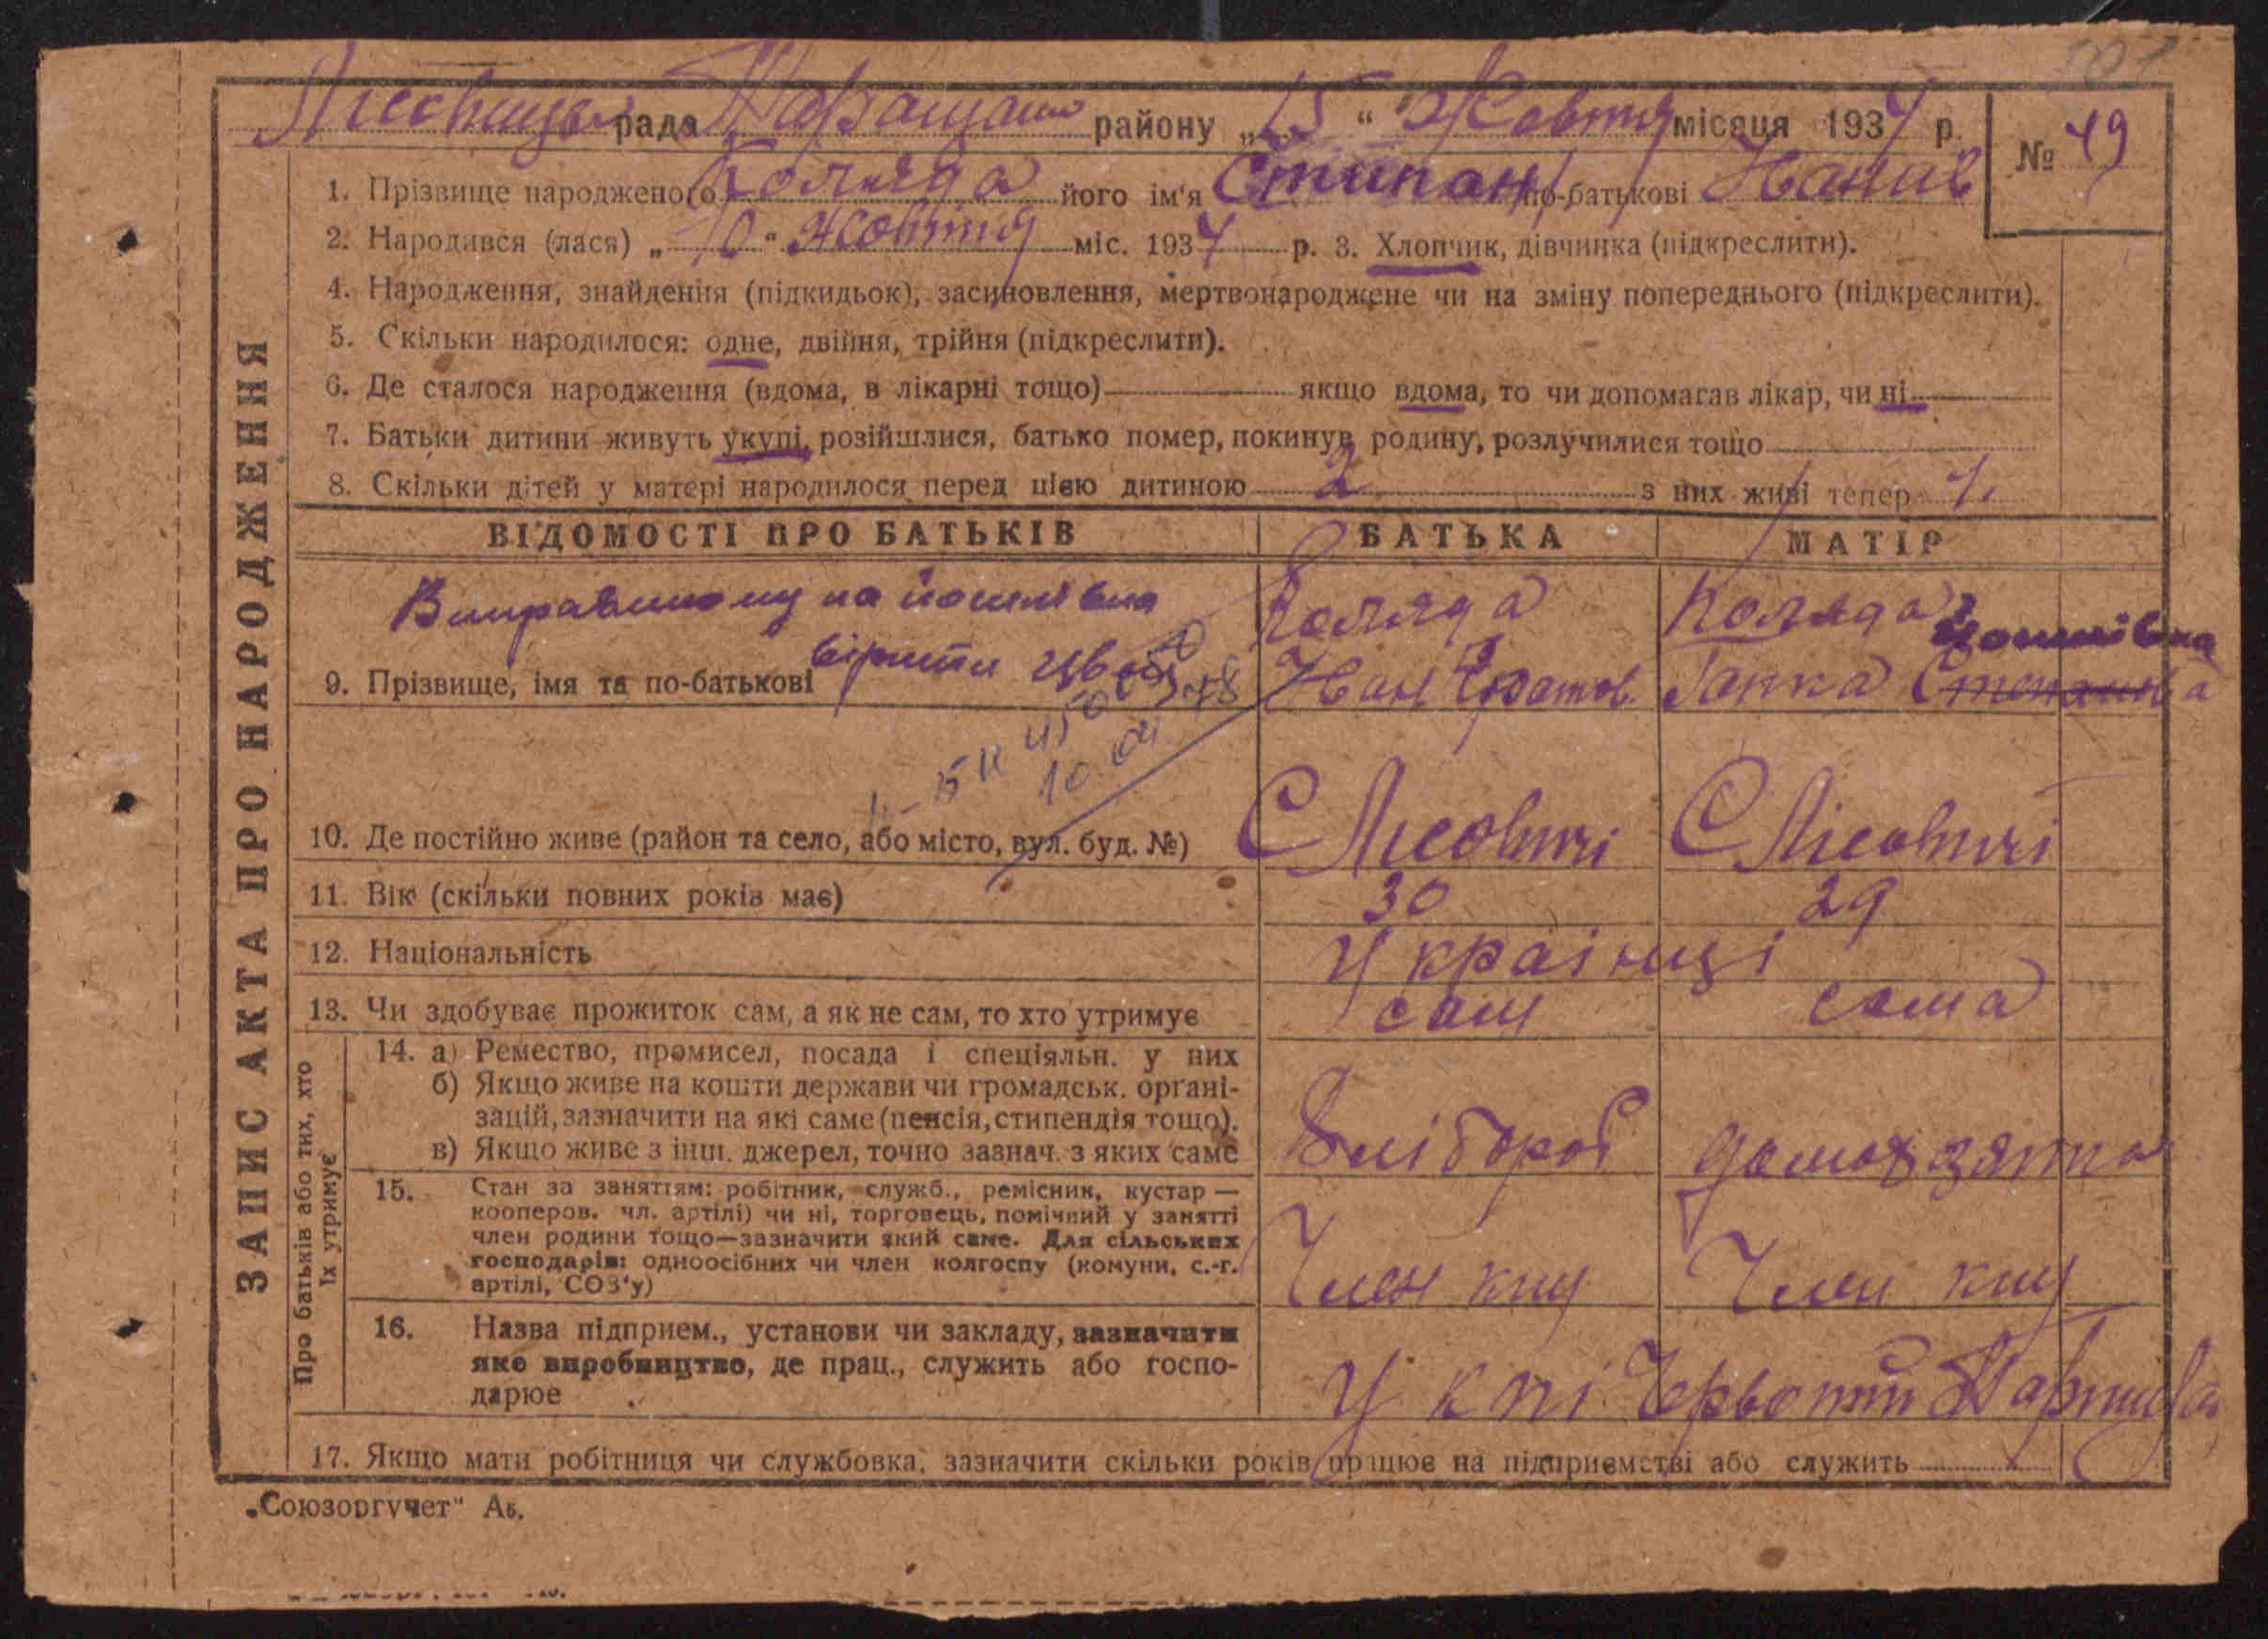 507
Лісовицьк рада Таращан району „15“ Жовтня місяця 1934 р.
№ 49
1. Прізвище народженого Коляда його ім'я Стипан по-батькові Іванів
2. Народився (лася) „10“ Жовтня міс. 1934 р. 3. Хлопчик, дівчинка (підкреслити).
4. Народження, знайдення (підкидьок), засиновлення, мертвонароджене чи на зміну попереднього (підкреслити).
5. Скільки народилося: одне, двійня, трійня (підкреслити).
6. Де сталося народження (вдома, в лікарні тощо) якщо вдома, то чи допомагав лікар, чи ні
7. Батьки дитини живуть укупі, розійшлися, батько помер, покинув родину, розлучилися тощо
8. Скільки дітей у матері народилося перед цією дитиною 2 з них живі тепер 1.
ЗАПИС АКТА ПРО НАРОДЖЕННЯ
ВІДОМОСТІ ПРО БАТЬКІВ БАТЬКА МАТІР
Виправленому на йосипівна
вірити
Коляда Коляда Йосипівна
9. Прізвище, імя та по-батькові Іван Ганка Степанова
10. Де постійно живе (район та село, або місто, вул. буд. №) С Лісовичі С Лісовичі
11. Вік (скільки повних років має) 30 29
12. Національність Українці
13. Чи здобуває прожиток сам, а як не сам, то хто утримує сам сама
Про батьків або тих, хто їх утримує
14. а) Ремество, промисел, посада і спеціяльн. у них
б) Якщо живе на кошти держави чи громадськ. органі-
зацій, зазначити на які саме (пенсія, стипендія тощо).
в) Якщо живе з інш. джерел, точно зазнач. з яких саме Хлібороб домохазяйка
15. Стан за заняттям: робітник, служб., ремісник, кустар —
кооперов. чл. артілі) чи ні, торговець, помічний у занятті
член родини тощо—зазначити який саме. Для сільських
господарів: одноосібних чи член колгоспу (комуни, с.-г.
артілі, СОЗ'у) Член кгп Член кгп
16. Назва підприєм., установи чи закладу, зазначити
яке виробництво, де прац., служить або госпо-
дарює У Партизан
17. Якщо мати робітниця чи службовка, зазначити скільки років працює на підприємстві або служить
„Союзоргучет“ Аб.